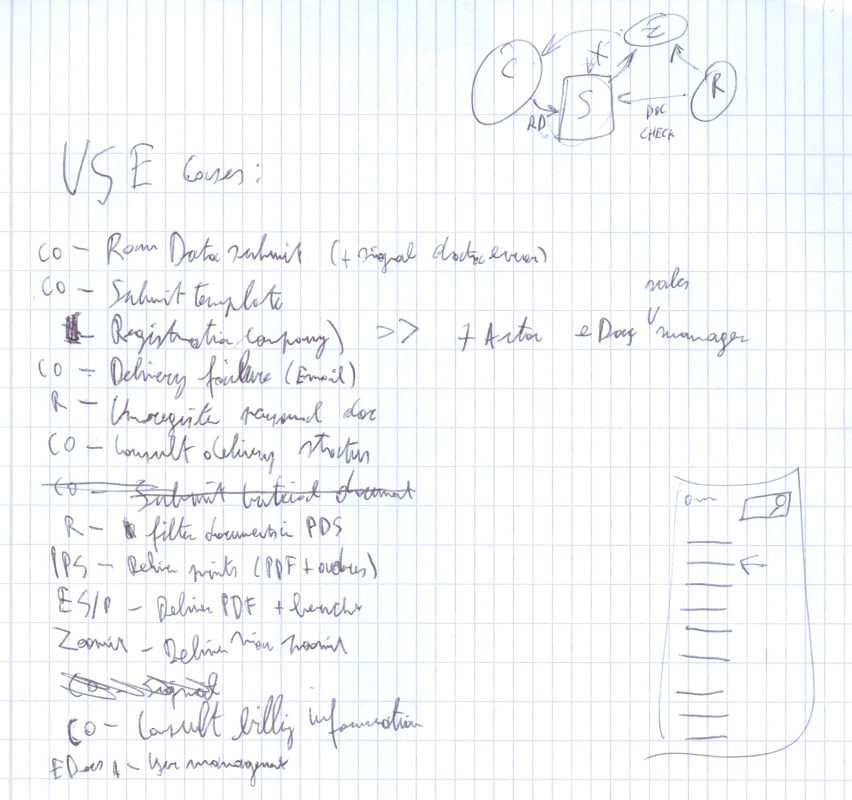 C
E
S
R
RD
DOC
CHECK
USE Cases:
CO - Raw Data submit (+ signal
CO - Submit template
Registration company) >> 7 Actor eDocs sales manager
CO - Delivery failure (Email)
R - Unregister doc
CO - Consult delivery status
CO - Submit document
R - filter documents in PDS
IPS - Deliver prints (PDF +
ES/P - Deliver PDF +
Zoomit - Deliver Zoomit
CO - Signal
CO - Consult billing information
EDocs A - User management